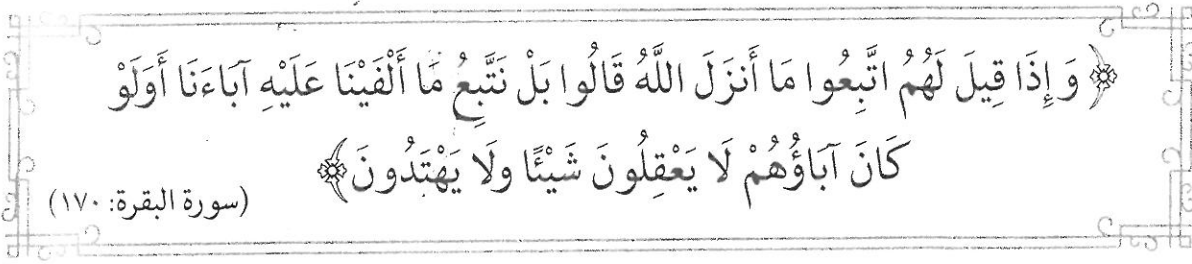 ﴿وَإِذَا قِيلَ لَهُمُ اتَّبِعُوا مَا أَنزَلَ اللَّهُ قَالُوا بَلْ نَتَّبِعُ مَا أَلْفَيْنَا عَلَيْهِ آبَاءَنَا أَوَلَوْ
كَانَ آبَاؤُهُمْ لَا يَعْقِلُونَ شَيْئًا ولَا يَهْتَدُونَ﴾
(سورة البقرة: ١٧٠)